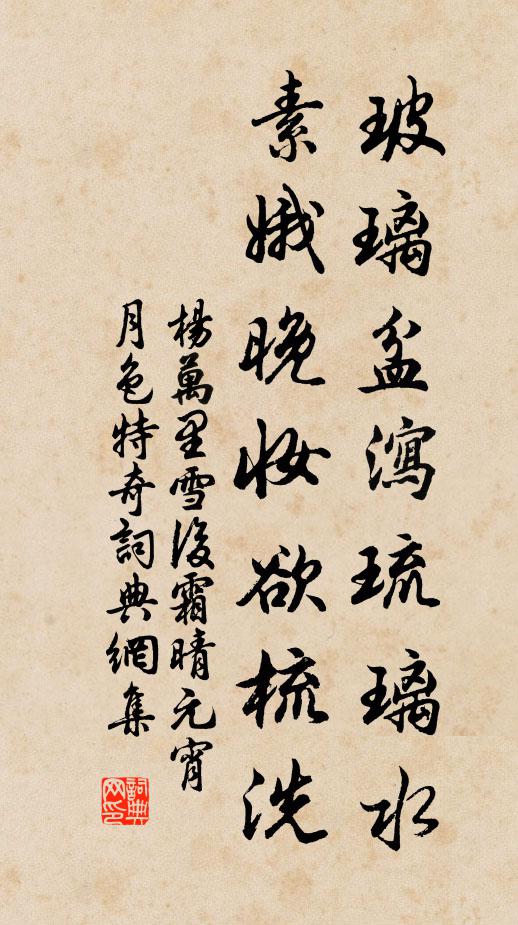 玻璃盆瀉琉璃水
素娥晚妝欲梳洗
楊萬里雪後霜晴元宵
月色特奇詞典網集
詞典
网印